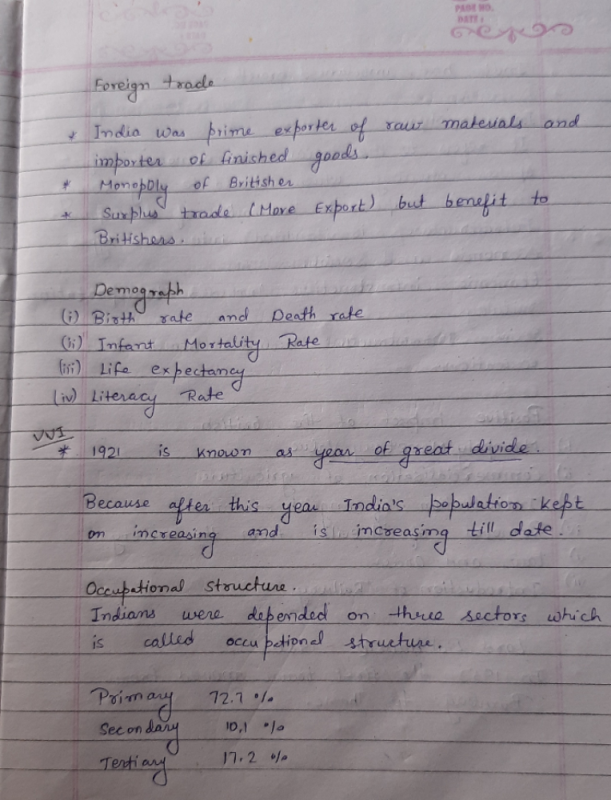 PAGE NO.
DATE:
Foreign trade
* India was prime exporter of raw materials and
importer of finished goods.
* Monopoly of Britisher
* Surplus trade (More Export) but benefit to
Britishers.
Demograph
(i) Birth rate and Death rate
(ii) Infant Mortality Rate
(iii) Life expectancy
(iv) Literacy Rate
VVI
* 1921 is known as year of great divide.
Because after this year India's population kept
on increasing and is increasing till date.
Occupational structure.
Indians were depended on three sectors which
is called occupational structure.
Primary 72.7 %
Secondary 10.1 %
Tertiary 17.2 %